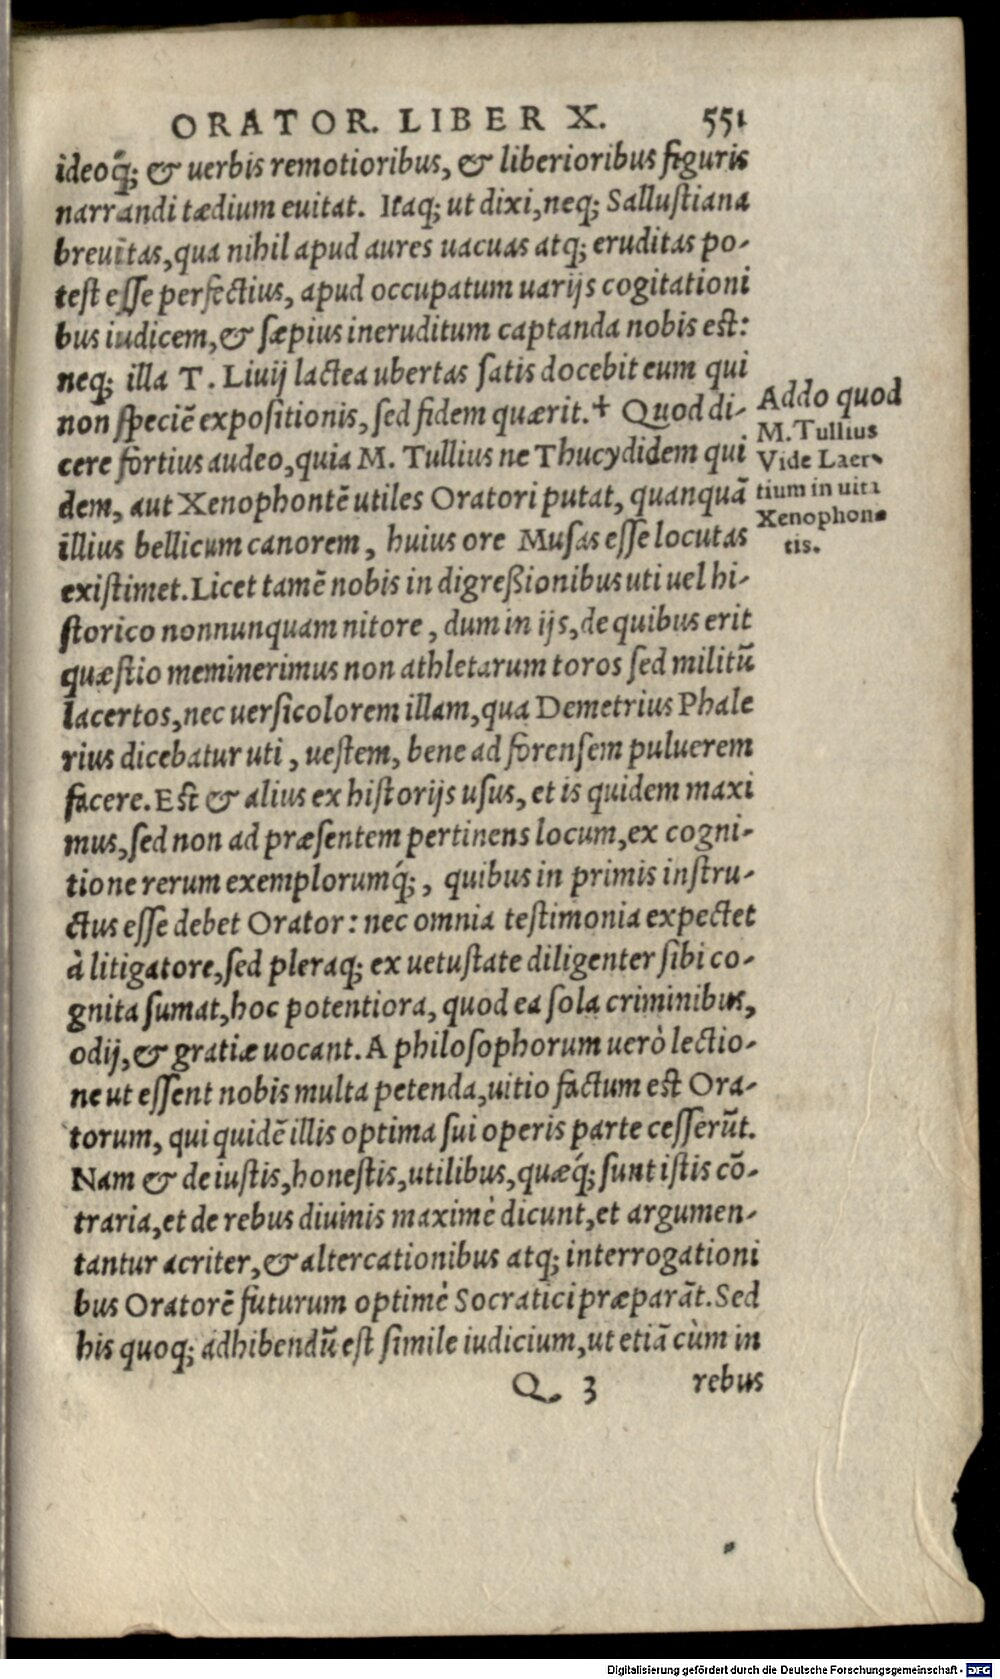 ORATOR. LIBER X. 551
ideoq́; & uerbis remotioribus, & liberioribus figuris
narrandi tædium euitat. Itaq; ut dixi, neq; Sallustiana
breuitas, qua nihil apud aures uacuas atq; eruditas po-
test esse perfectius, apud occupatum uarijs cogitationi
bus iudicem, & sæpius ineruditum captanda nobis est:
neq; illa T. Liuij lactea ubertas satis docebit eum qui
non speciē expositionis, sed fidem quærit.+ Quod di-
cere fortius audeo, quia M. Tullius ne Thucydidem qui
dem, aut Xenophontē utiles Oratori putat, quanquā
illius bellicum canorem, huius ore Musas esse locutas
existimet. Licet tamē nobis in digreßionibus uti uel hi-
storico nonnunquam nitore, dum in ijs, de quibus erit
quæstio meminerimus non athletarum toros sed militū
lacertos, nec uersicolorem illam, qua Demetrius Phale
rius dicebatur uti, uestem, bene ad forensem puluerem
facere. Est & alius ex historijs usus, et is quidem maxi
mus, sed non ad præsentem pertinens locum, ex cogni-
tione rerum exemplorumq́;, quibus in primis instru-
ctus esse debet Orator: nec omnia testimonia expectet
à litigatore, sed pleraq; ex uetustate diligenter sibi co-
gnita sumat, hoc potentiora, quod ea sola criminibus,
odij, & gratiæ uocant. A philosophorum uerò lectio-
ne ut essent nobis multa petenda, uitio factum est Ora-
torum, qui quidē illis optima sui operis parte cesserūt.
Nam & de iustis, honestis, utilibus, quæq́; sunt istis cō-
traria, et de rebus diuinis maximè dicunt, et argumen-
tantur acriter, & altercationibus atq; interrogationi
bus Oratorē futurum optimè Socratici præparāt. Sed
his quoq; adhibendū est simile iudicium, ut etiā cùm in
Q 3 rebus
Addo quod
M. Tullius
Vide Laer-
tium in uita
Xenophon-
tis.
Digitalisierung gefördert durch die Deutsche Forschungsgemeinschaft - DFG